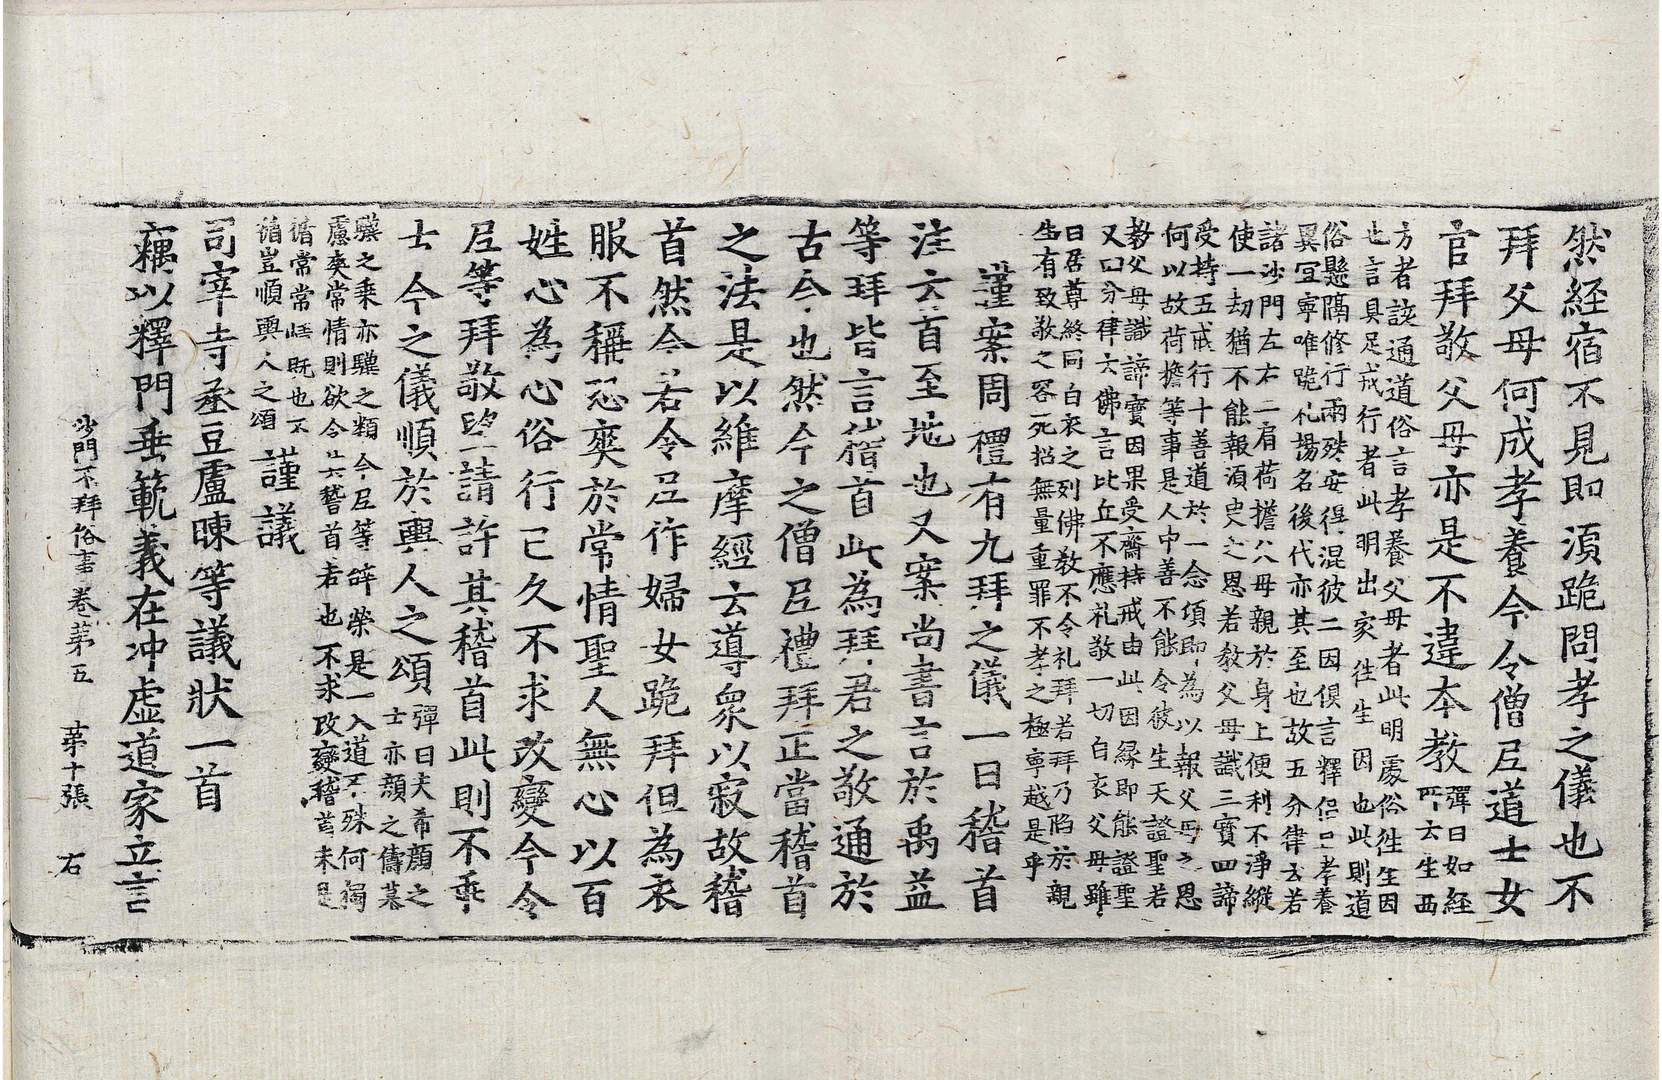 然經宿不見即須跪問孝之儀也不
拜父母何成孝養今令僧尼道士女
官拜敬父母亦是不違本教
彈曰如經
所云生西
方者該通道俗言孝養父母者此明處俗往生因
也言具足戒行者此明出家往生因也此則道
俗懸隔修行兩殊安得混彼二因俱言釋侶曰孝養
異宜寧唯跪礼揚名後代亦其至也故五分律云若
諸沙門左右二肩荷擔父母親於身上便利不淨縱
使一劫猶不能報須臾之恩若教父母識三寶四諦
受持五戒行十善道於一念頃即為以報父母之恩
何以故荷擔等事是人中善不能令彼生天證聖若
教父母識諦寶因果受齋持戒由此因緣即能證聖
又曰分律云佛言比丘不應礼敬一切白衣父母雖
曰居尊終同白衣之列佛教不令礼拜若拜乃陷於親
生有致敬之容死招無量重罪不孝之極寧越是乎
謹案周禮有九拜之儀一曰稽首
注云首至地也又案尚書言於禹益
等拜皆言稽首此為拜君之敬通於
古今也然今之僧尼禮拜正當稽首
之法是以維摩經云導眾以寂故稽
首然今若令尼作婦女跪拜但為衣
服不稱恐爽於常情聖人無心以百
姓心為心俗行已久不求改變今令
尼等拜敬望請許其稽首此則不乖
士今之儀順於輿人之頌
彈曰夫希顏之
士亦顏之儔慕
驥之乘亦驥之類今尼等辭榮是一入道不殊何獨
慮爽常情則欲令其稽首者也不求改變稽首未是
循常常情既也不
循豈順輿人之頌
謹議
司宰寺丞豆盧暕等議狀一首
竊以釋門垂範義在冲虛道家立言
沙門不拜俗書卷第五 第十張 右